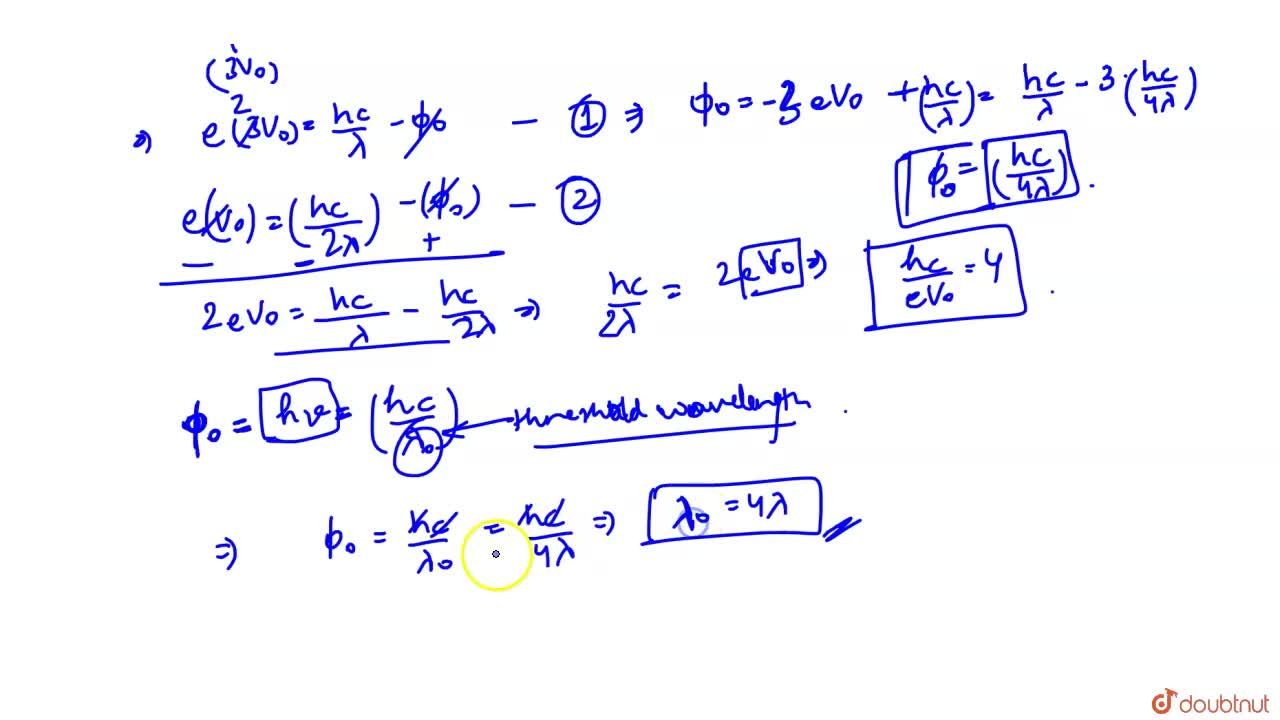 (3V₀)
⇒ e(3V₀) = hc/λ - ϕ₀ — ① ⇒ ϕ₀ = -3eV₀ + (hc/λ) = hc/λ - 3·(hc/4λ)
ϕ₀ = (hc/4λ).
e(V₀) = (hc/2λ) - (ϕ₀) — ②
- - +
2eV₀ = hc/λ - hc/2λ ⇒ hc/2λ = 2eV₀ ⇒ hc/eV₀ = 4.
ϕ₀ = hν = (hc/λ₀) ← threshold wavelength.
⇒ ϕ₀ = hc/λ₀ = hc/4λ ⇒ λ₀ = 4λ
doubtnut